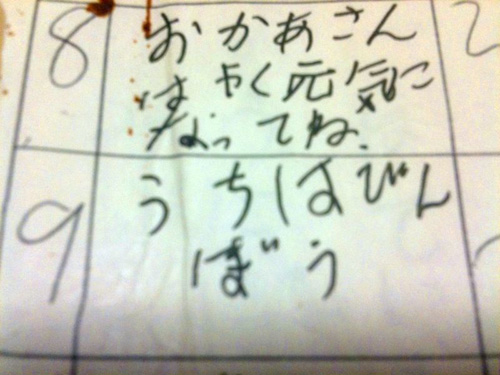 8 おかあさん
はやく元気に
なってね.
9 うちはびん
ぼう